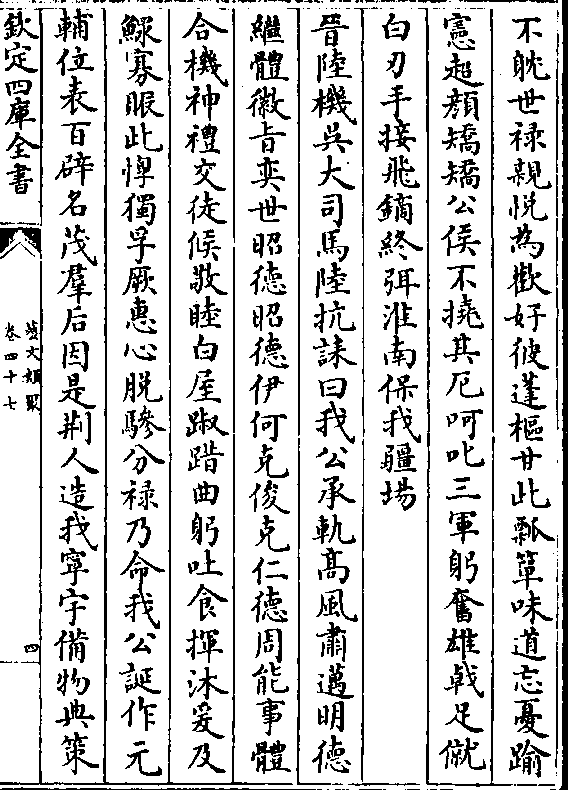 不耽世禄親悦為歡好彼蓬樞甘此瓢簞味道忘憂踰
憲超顔矯矯公侯不撓其厄呵叱三軍躬奮雄戟足僦
白刃手接飛鏑終弭淮南保我疆埸
晉陸機吳大司馬陸抗誄曰我公承軌髙風肅邁明德
繼體徽音奕世昭德昭德伊何克俊克仁德周能事體
合機神禮交徒候敬睦白屋踧踖曲躬吐食揮沐爰及
鰥寡賑此惸獨孚厥惠心脱驂分禄乃命我公誕作元
輔位表百辟名茂羣后因是荆人造我寧宇備物典策
欽定四庫全書
藝文類聚
卷四十七
四